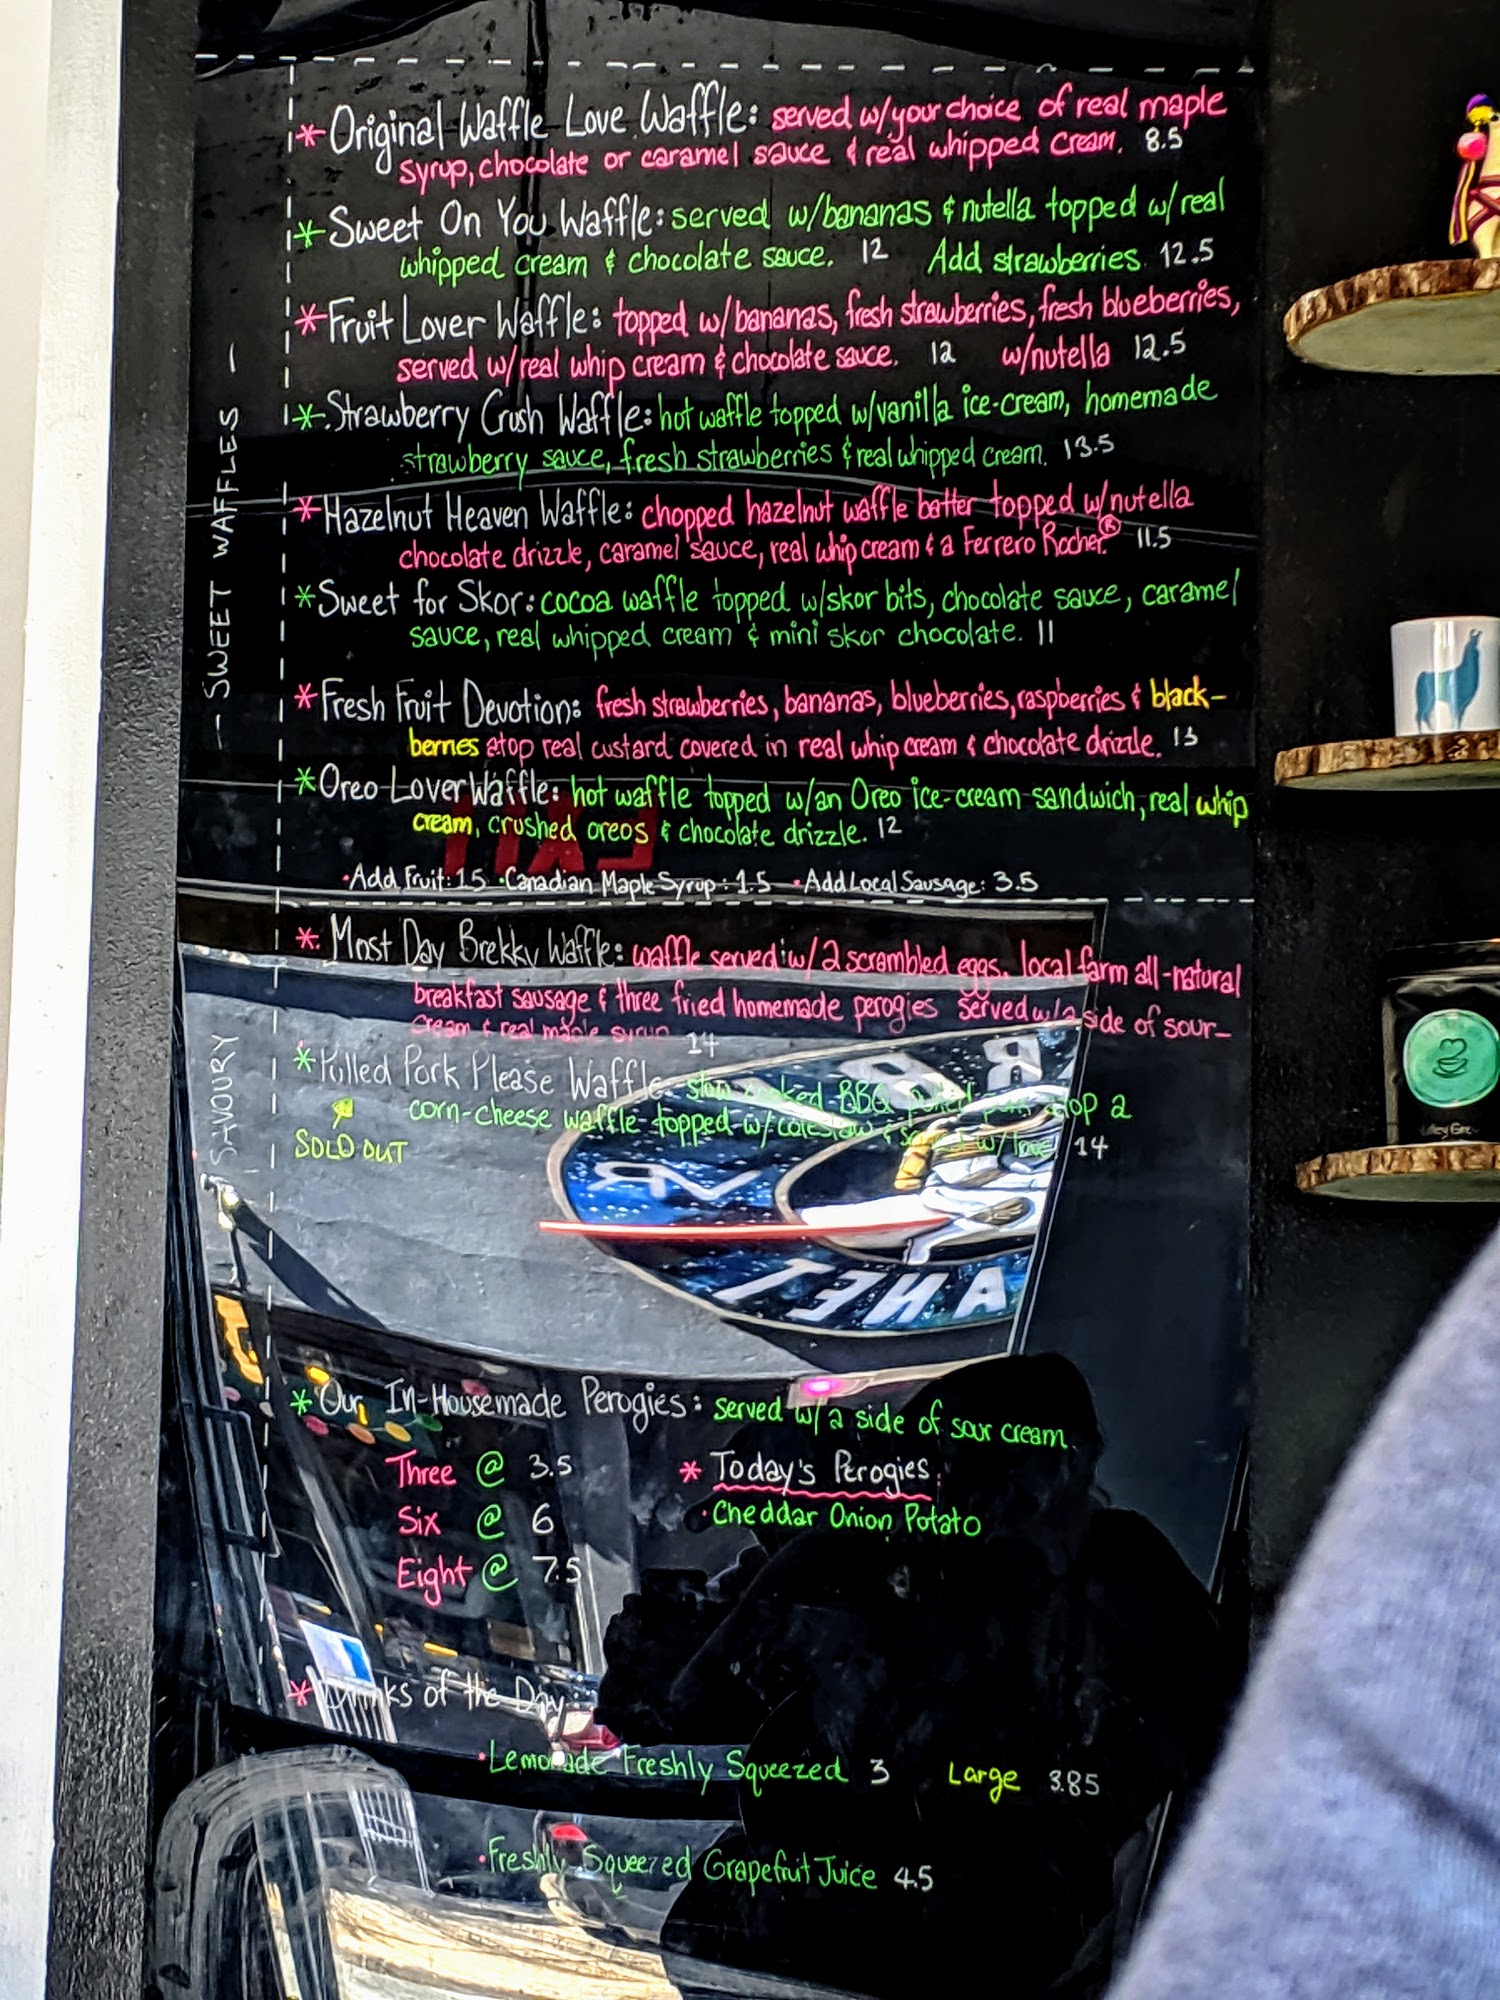 — SWEET WAFFLES —
* Original Waffle Love Waffle: served w/your choice of real maple
syrup, chocolate or caramel sauce & real whipped cream. 8.5
* Sweet On You Waffle: served w/bananas & nutella topped w/real
whipped cream & chocolate sauce. 12 Add strawberries. 12.5
* Fruit Lover Waffle: topped w/bananas, fresh strawberries, fresh blueberries,
served w/real whip cream & chocolate sauce. 12 w/nutella 12.5
* Strawberry Crush Waffle: hot waffle topped w/vanilla ice-cream, homemade
strawberry sauce, fresh strawberries & real whipped cream. 13.5
* Hazelnut Heaven Waffle: chopped hazelnut waffle batter topped w/nutella
chocolate drizzle, caramel sauce, real whip cream & a Ferrero Rocher.® 11.5
* Sweet for Skor: cocoa waffle topped w/skor bits, chocolate sauce, caramel
sauce, real whipped cream & mini skor chocolate. 11
* Fresh Fruit Devotion: fresh strawberries, bananas, blueberries, raspberries & black-
berries atop real custard covered in real whip cream & chocolate drizzle. 13
* Oreo Lover Waffle: hot waffle topped w/an Oreo ice-cream sandwich, real whip
cream, crushed oreos & chocolate drizzle. 12
EXIT
• Add Fruit: 1.5 • Canadian Maple Syrup: 1.5 • Add Local Sausage: 3.5
SAVOURY
* Most Day Brekky Waffle: waffle served w/2 scrambled eggs, local farm all-natural
breakfast sausage & three fried homemade perogies served w/a side of sour-
cream & real maple syrup 14
* Pulled Pork Please Waffle slow cooked BBQ pulled pork atop a
corn-cheese waffle topped w/coleslaw & served w/love 14
SOLD OUT
* Our In-Housemade Perogies: served w/ a side of sour cream.
Three @ 3.5
Six @ 6
Eight @ 7.5
* Today's Perogies.
• Cheddar Onion Potato
* Drinks of the Day:
• Lemonade Freshly Squeezed 3 Large 3.85
• Freshly Squeezed Grapefruit Juice 4.5